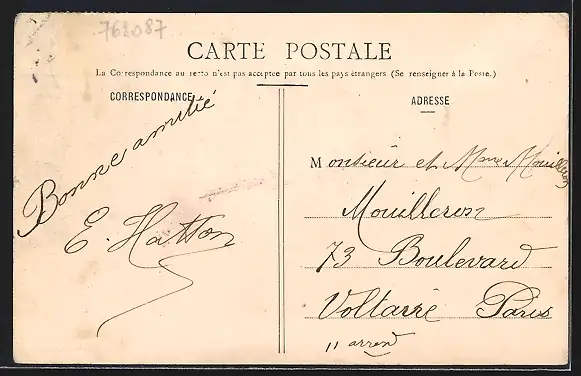 762087
CARTE POSTALE
La Correspondance au recto n'est pas acceptee par tous les pays étrangers (Se renseigner à la Poste.)
CORRESPONDANCE
Bonne amitié
E. Hatton
ADRESSE
Monsieur et Mme Mouilleron
Mouilleron
73 Boulevard
Voltaire Paris
11 arrond